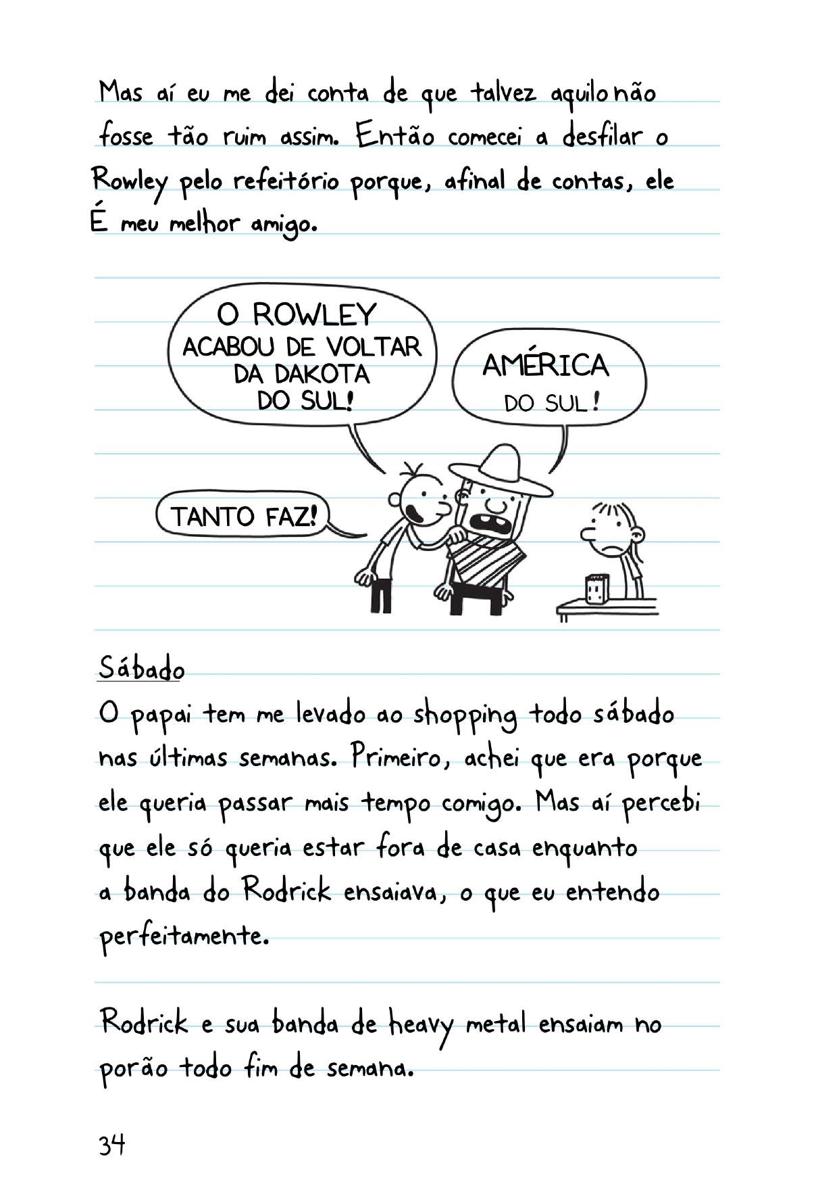 Mas aí eu me dei conta de que talvez aquilo não
fosse tão ruim assim. Então comecei a desfilar o
Rowley pelo refeitório porque, afinal de contas, ele
É meu melhor amigo.
O ROWLEY
ACABOU DE VOLTAR
DA DAKOTA
DO SUL!
AMÉRICA
DO SUL!
TANTO FAZ!
Sábado
O papai tem me levado ao shopping todo sábado
nas últimas semanas. Primeiro, achei que era porque
ele queria passar mais tempo comigo. Mas aí percebi
que ele só queria estar fora de casa enquanto
a banda do Rodrick ensaiava, o que eu entendo
perfeitamente.
Rodrick e sua banda de heavy metal ensaiam no
porão todo fim de semana.
34